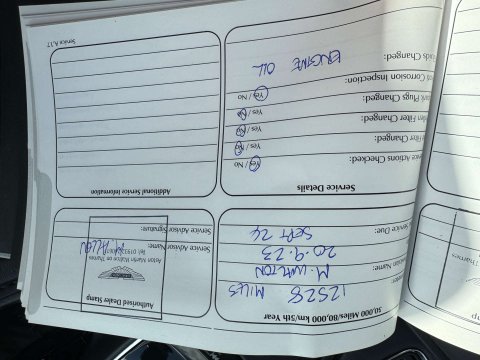 50,000 Miles/80,000 km/5th Year
12528 MILES
Name:
M. WALTON
20.9.23
Service Due:
SEPT 24
Authorised Dealer Stamp
Aston Martin Walton on Thames
Service Advisor Name:
Service Advisor Signature:
Service Details
Actions Checked: Yes / No
Filter Changed: Yes / No
Filter Changed: Yes / No
Plugs Changed: Yes / No
Corrosion Inspection: Yes / No
Changed:
ENGINE OIL
Additional Service Information
Service A.17
Thames